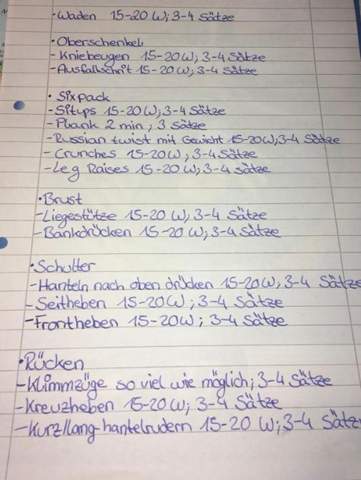 • Waden 15-20 W; 3-4 Sätze
• Oberschenkel
- Kniebeugen 15-20 W; 3-4 Sätze
- Ausfallschrit 15-20 W; 3-4 Sätze
• Sixpack
- Situps 15-20 W; 3-4 Sätze
- Plank 2 min; 3 Sätze
- Russian twist mit Gewicht 15-20 W; 3-4 Sätze
- Crunches 15-20 W; 3-4 Sätze
- Leg Raises 15-20 W; 3-4 Sätze
• Brust
- Liegestütze 15-20 W; 3-4 Sätze
- Bankdrücken 15-20 W; 3-4 Sätze
• Schulter
- Hanteln nach oben drücken 15-20 W; 3-4 Sätze
- Seitheben 15-20 W; 3-4 Sätze
- Frontheben 15-20 W; 3-4 Sätze
• Rücken
- Klimmzüge so viel wie möglich; 3-4 Sätze
- Kreuzheben 15-20 W; 3-4 Sätze
- Kurz/lang-hantelrudern 15-20 W; 3-4 Sätz